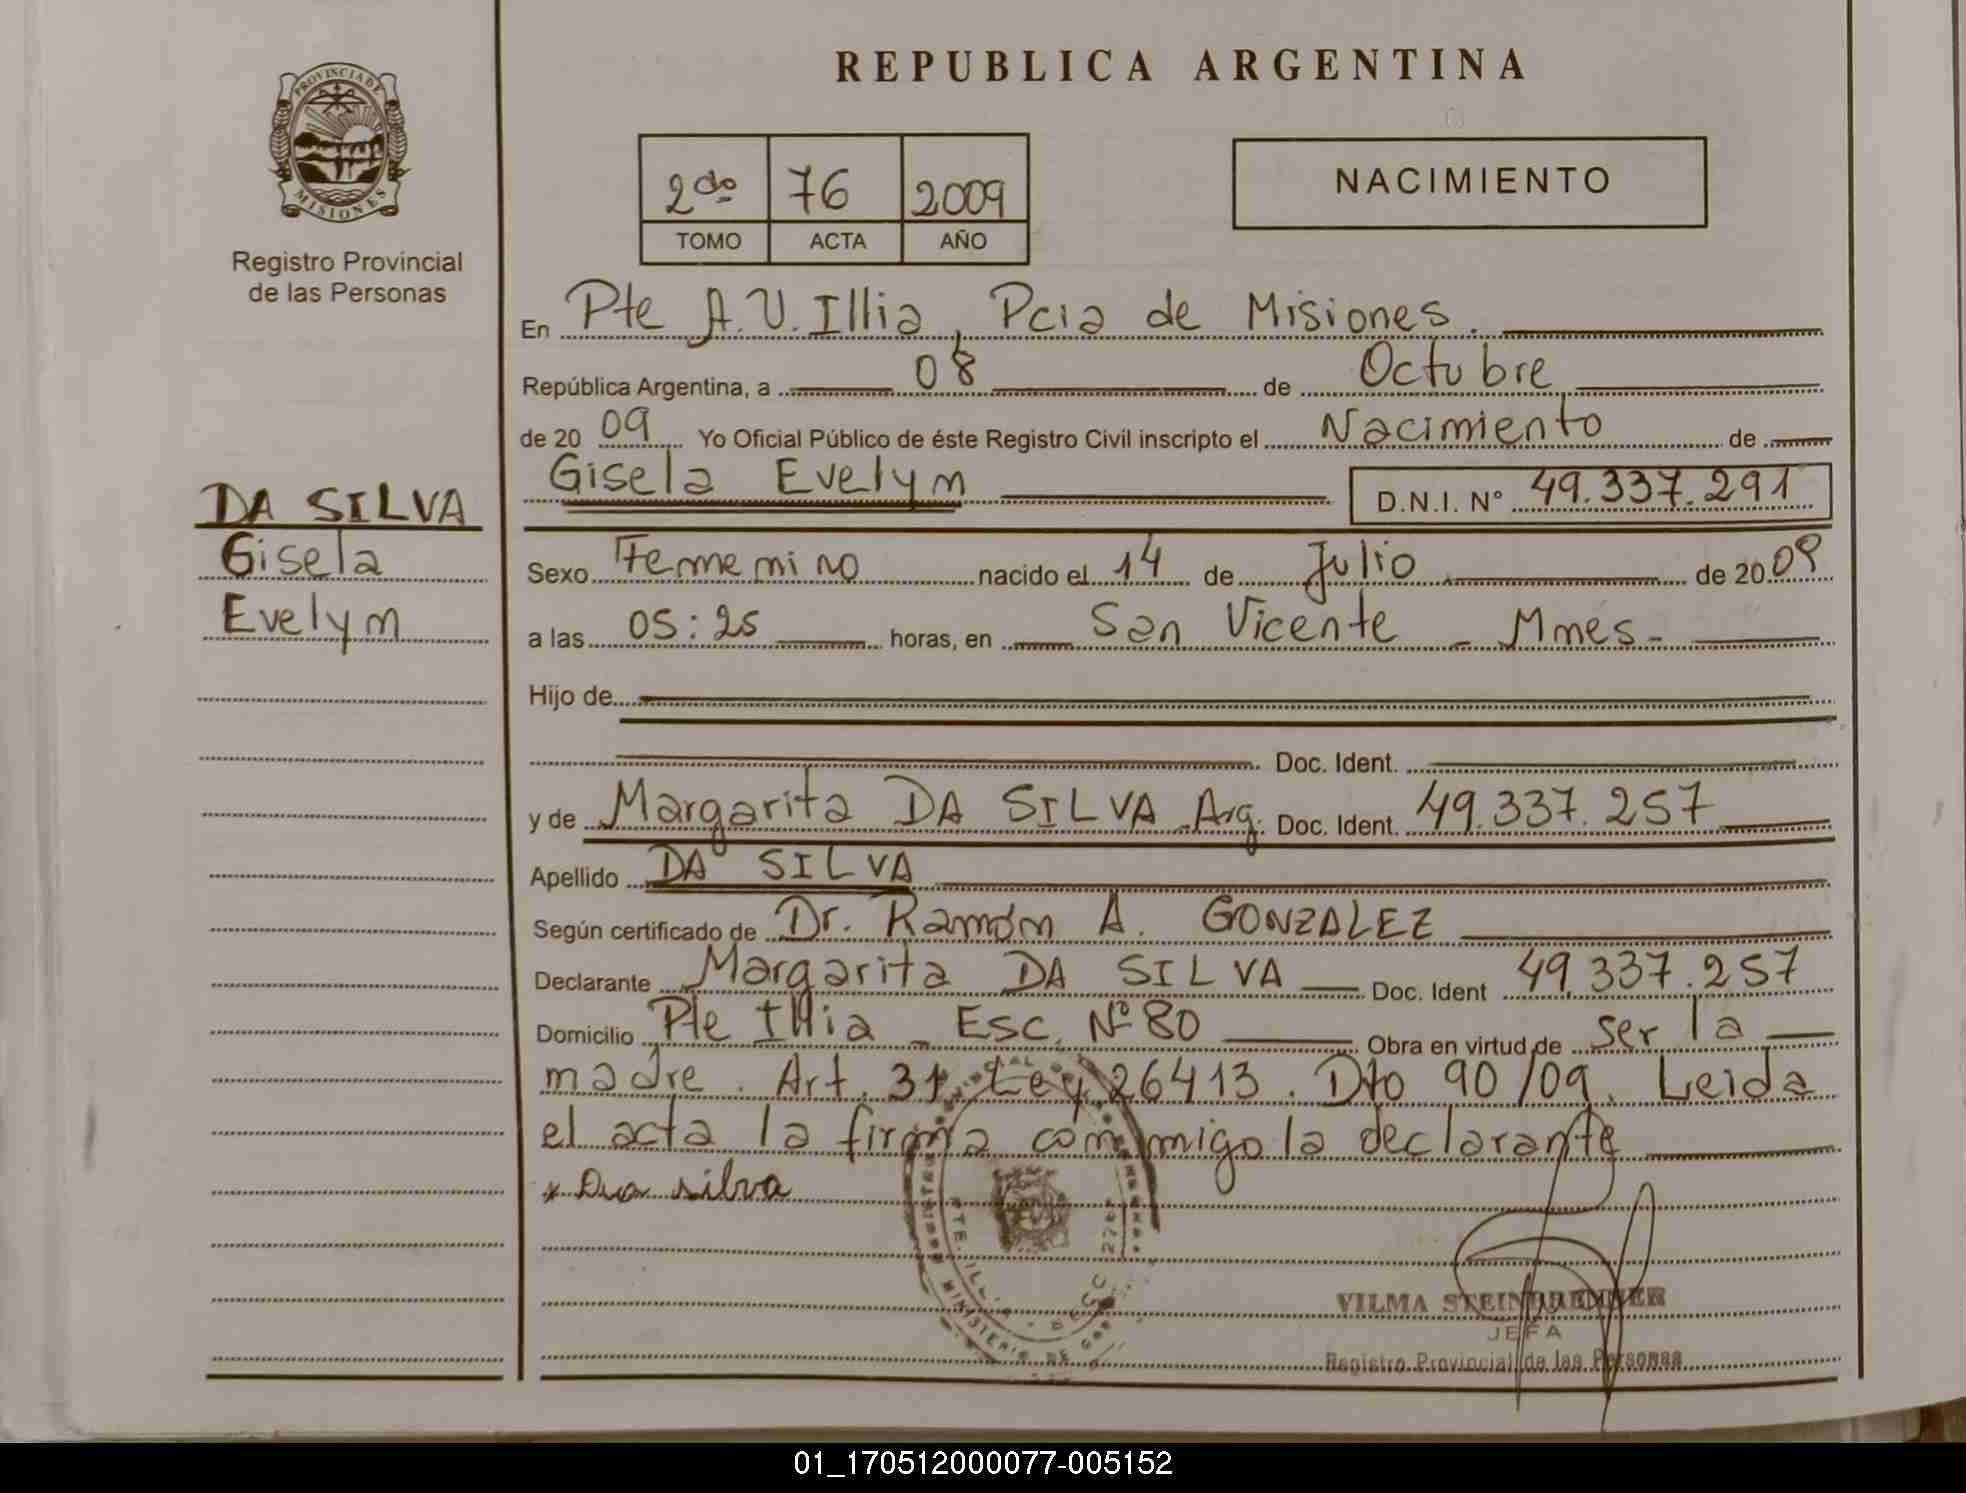 REPUBLICA ARGENTINA
PROVINCIA DE
MISIONES
Registro Provincial
de las Personas
2do 76 2009
TOMO ACTA AÑO
NACIMIENTO
En Pte A.U.Illia, Pcia de Misiones.
República Argentina, a 08 de Octubre
de 20 09 Yo Oficial Público de éste Registro Civil inscripto el Nacimiento de
Gisela Evelym D.N.I. Nº 49.337.291
DA SILVA
Gisela
Evelym
Sexo Femenino nacido el 14 de Julio de 2009
a las 05:25 horas, en San Vicente - Mnes-
Hijo de
Doc. Ident.
y de Margarita DA SILVA Arg. Doc. Ident. 49.337.257
Apellido DA SILVA
Según certificado de Dr. Ramón A. GONZALEZ
Declarante Margarita DA SILVA Doc. Ident 49.337.257
Domicilio Pte Illia - Esc. Nº 80 Obra en virtud de ser la
madre. Art. 31 Ley 26413. Dto 90/09. Leida
el acta la firma conmigo la declarante
* Da silva
VILMA STEINBRENNER
JEFA
Registro Provincial de las Personas
01_170512000077-005152